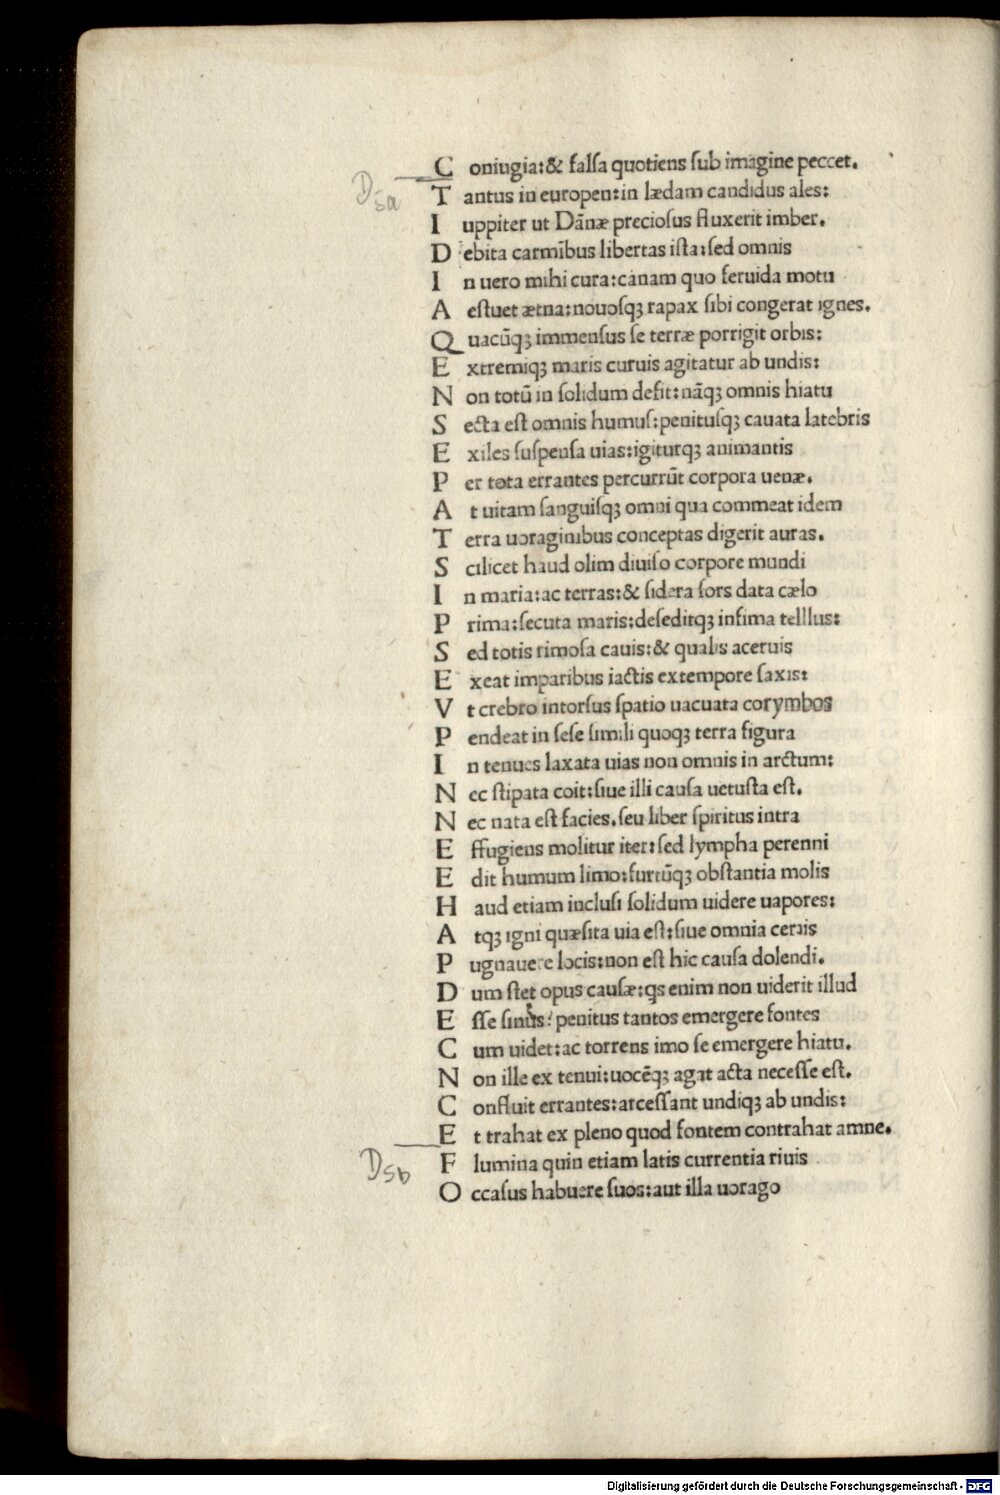 C oniugia:& falsa quotiens sub imagine peccet.
Dsa
T antus in europen:in lædam candidus ales:
I uppiter ut Dãnæ preciosus fluxerit imber.
D ebita carmĩbus libertas ista:sed omnis
I n uero mihi cura:canam quo feruida motu
A estuet ætna:nouosqꝫ rapax sibi congerat ignes.
Q uacũqꝫ immensus se terræ porrigit orbis:
E xtremiqꝫ maris curuis agitatur ab undis:
N on totũ in solidum desit:nãqꝫ omnis hiatu
S ecta est omnis humus:penitusqꝫ cauata latebris
E xiles suspensa uias:igiturqꝫ animantis
P er tota errantes percurrũt corpora uenæ.
A t uitam sanguisqꝫ omni qua commeat idem
T erra uoraginibus conceptas digerit auras.
S cilicet haud olim diuiso corpore mundi
I n maria:ac terras:& sidera sors data cælo
P rima:secuta maris:deseditqꝫ infima telllus:
S ed totis rimosa cauis:& qualis aceruis
E xeat imparibus iactis extempore saxis:
V t crebro intorsus spatio uacuata corymbos
P endeat in sese simili quoqꝫ terra figura
I n tenues laxata uias non omnis in arctum:
N ec stipata coit:siue illi causa uetusta est.
N ec nata est facies.seu liber spiritus intra
E ffugiens molitur iter:sed lympha perenni
E dit humum limo:furtũqꝫ obstantia molis
H aud etiam inclusi solidum uidere uapores:
A tqꝫ igni quæsita uia est:siue omnia certis
P ugnauere locis:non est hic causa dolendi.
D um stet opus causæ:qs enim non uiderit illud
E sse sinus? penitus tantos emergere fontes
C um uidet:ac torrens imo se emergere hiatu.
N on ille ex tenui:uocẽqꝫ agat acta necesse est.
C onfluit errantes:arcessant undiqꝫ ab undis:
E t trahat ex pleno quod fontem contrahat amne.
Dsb
F lumina quin etiam latis currentia riuis
O ccasus habuere suos:aut illa uorago
Digitalisierung gefördert durch die Deutsche Forschungsgemeinschaft - DFG